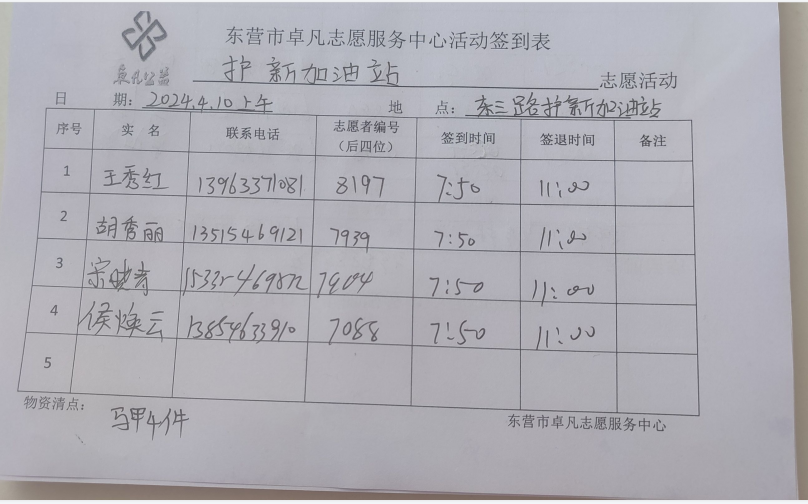 卓凡公益
东营市卓凡志愿服务中心活动签到表
护新加油站 志愿活动
日 期：2024.4.10上午 地 点：东三路护新加油站
序号 实 名 联系电话 志愿者编号（后四位） 签到时间 签退时间 备注
1 王秀红 13963371081 8197 7:50 11:00
2 胡秀丽 13515469121 7939 7:50 11:00
3 宗晓青 7904 7:50 11:00
4 侯焕云 13854633910 7088 7:50 11:00
5
物资清点：马甲4件
东营市卓凡志愿服务中心